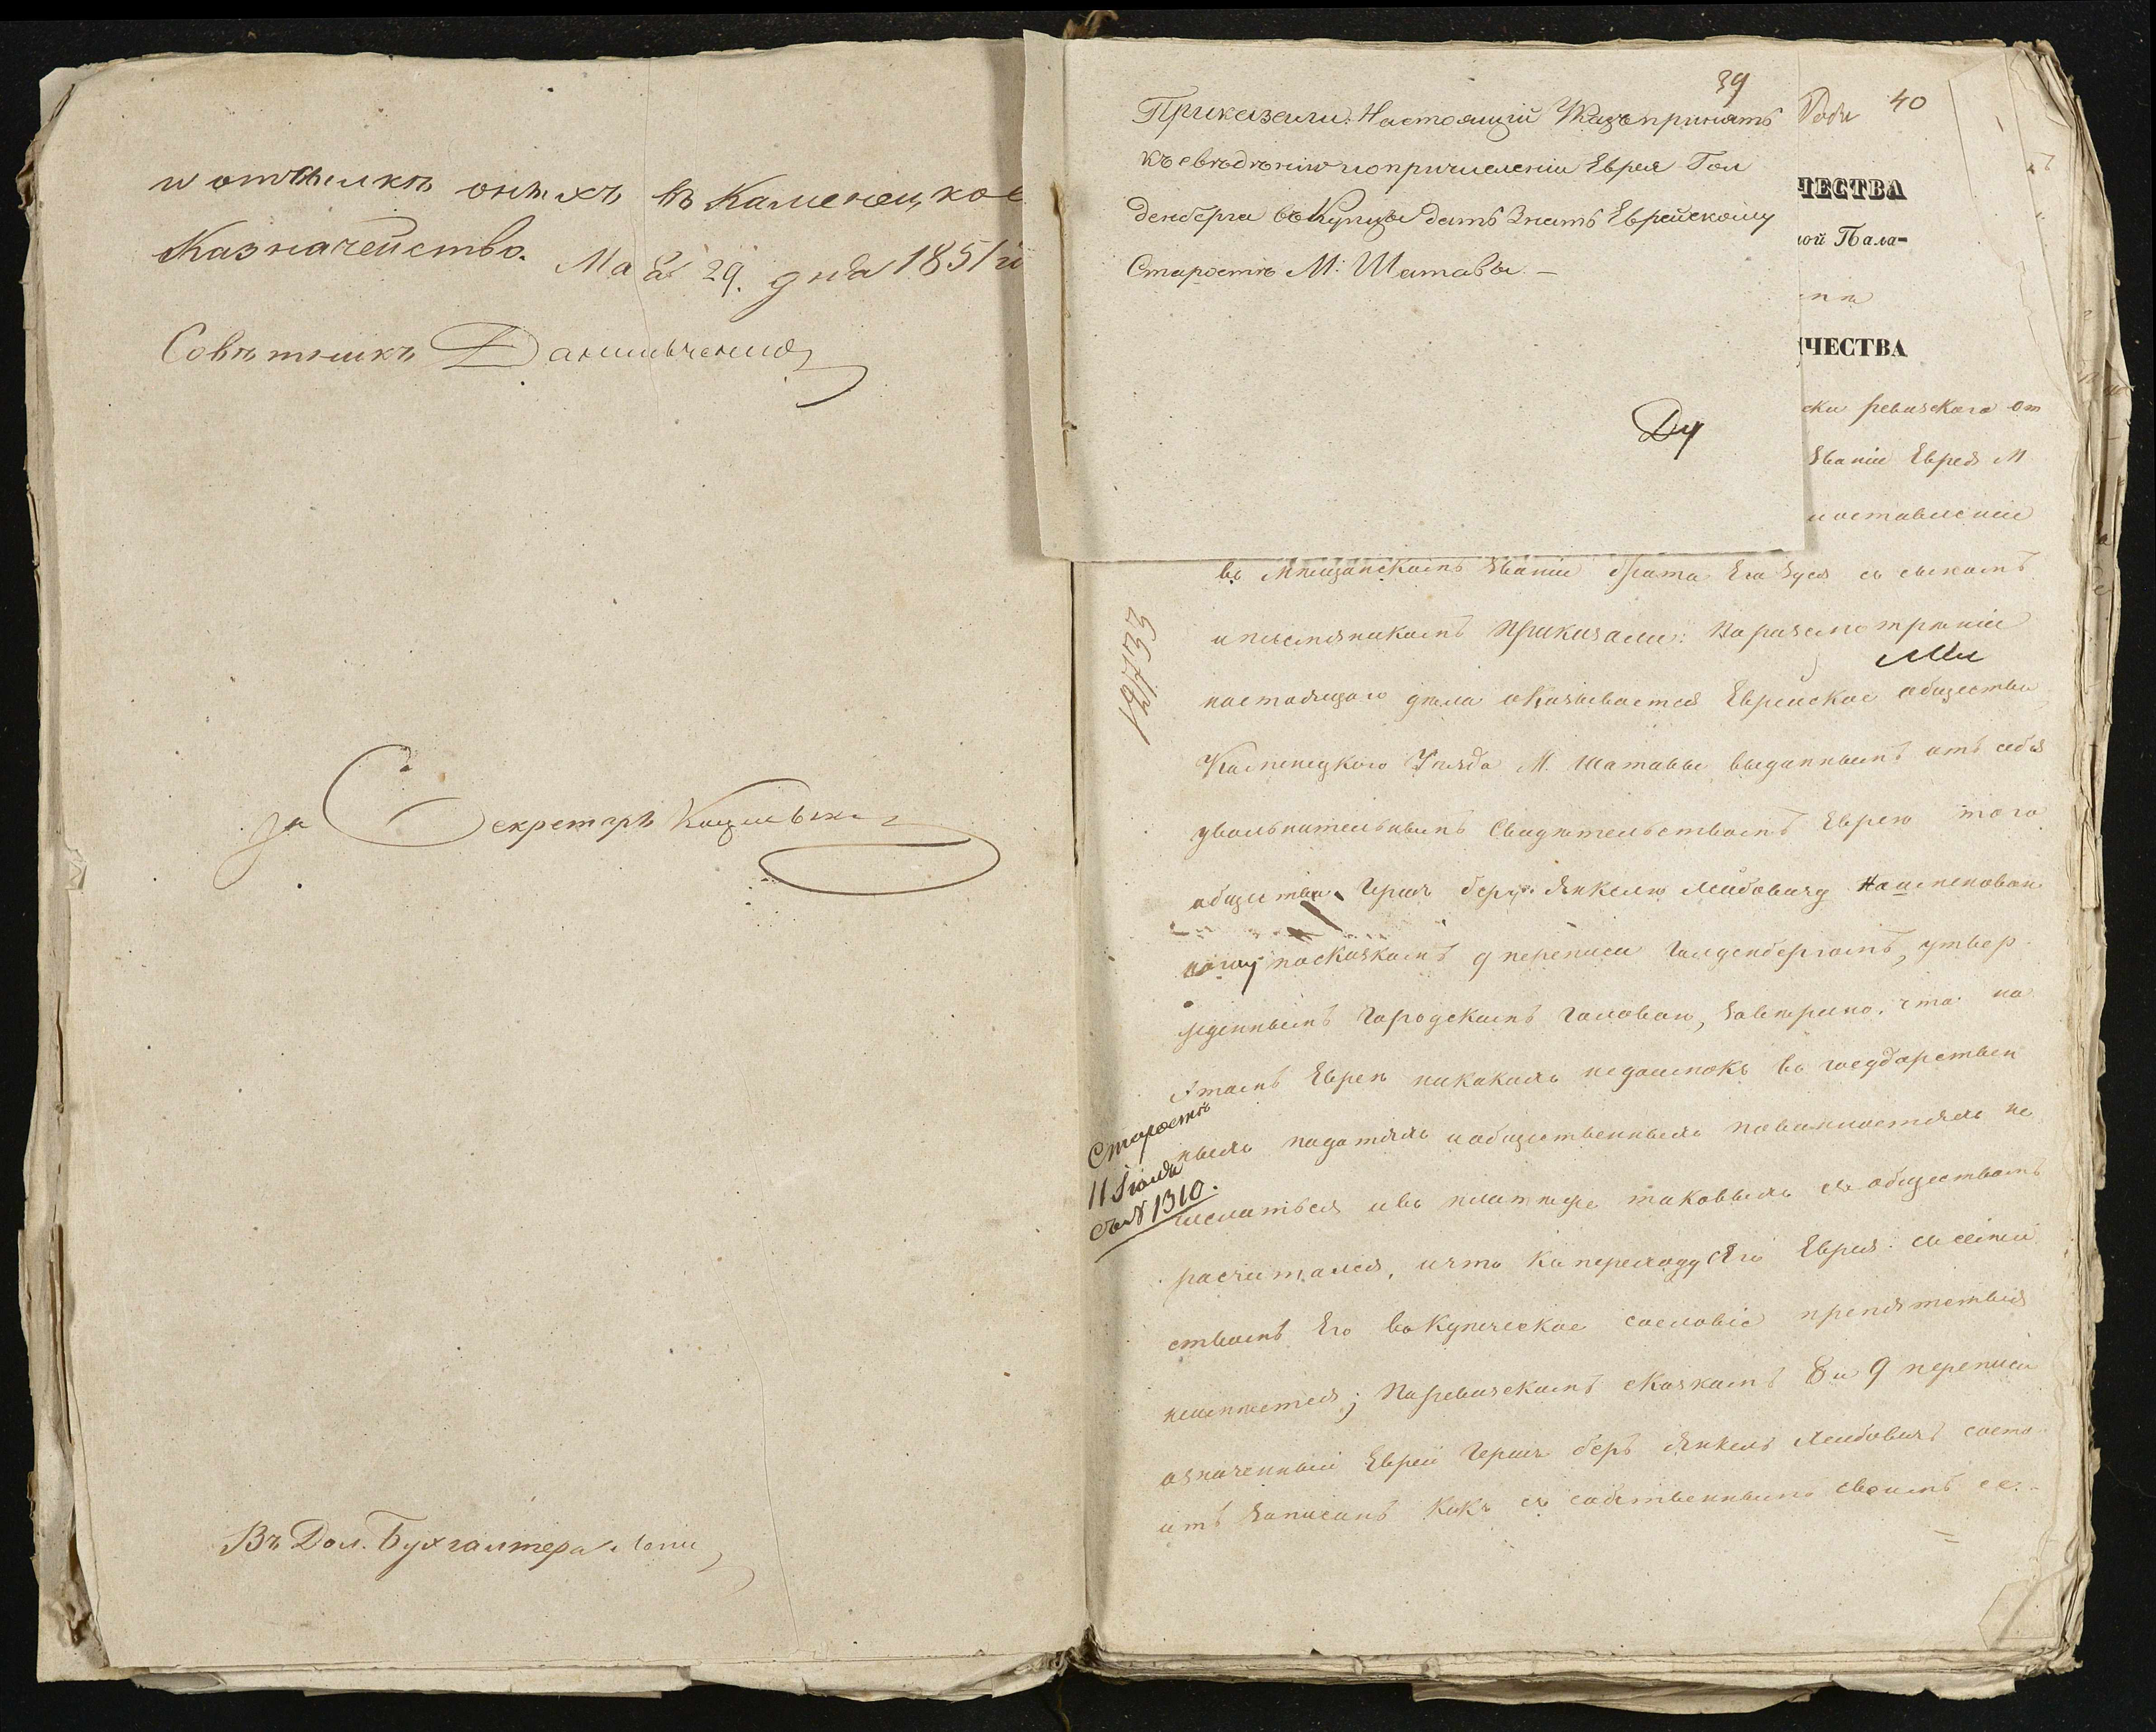 и отсылкѣ оныхъ въ Каменецкое
Казначейство. Мая 29. дня 1851 г
Совѣтникъ Данильченко
за Секретарь
Въ Дол. Бухгалтера
39
Приказали: Настоящій Указъ принять
къ свѣдѣнію и опричисленіи Еврея Гол
денберга въ Купцы дать знать Еврейскому
Старостѣ М: Шатавы. —
Ду
40
ЧЕСТВА
ной Пала-
ЧЕСТВА
ски ревизскаго от
званіи Еврея М
и оставленіи
въ Мѣщанскомъ званіи брата Его Зуся съ сыномъ
и племянникомъ Приказали: По разсмотрѣніи
настоящаго дѣла оказывается Еврейское общество
Каменецкаго Уѣзда М. Шатавы выданнымъ отъ себя
увольнительнымъ Свидѣтельствомъ Еврею того
общества Гершъ Беру Янкелю Лейбовичу Наименован
ному по сказкамъ 9 переписи Голденбергомъ, утвер
жденнымъ Городскимъ Головою, завѣрено, что на
этомъ Еврею никакихъ недоимокъ въ государствен
ныхъ податяхъ и общественныхъ повинностяхъ не
числиться и въ платежѣ таковыхъ съ обществомъ
расчитался, и что къ переходу его Еврея съ семей
ствомъ Его въ Купеческое сословіе препятствія
неимѣется; По ревизскимъ сказкамъ 8 и 9 переписи
означенный Еврей Гершъ Беръ Янкель Лейбовичъ состо
итъ записанъ какъ съ собственнымъ своимъ се-
Старостѣ
11 Іюля
за № 1310.